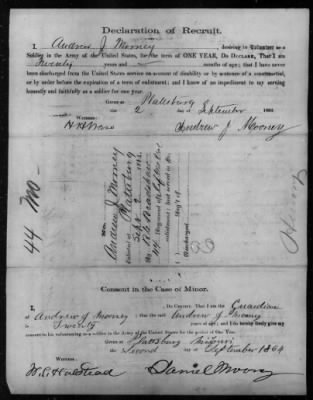 Declaration of Recruit.
I, Andrew J Mooney desiring to Volunteer as a
Soldier in the Army of the United States, for the term of ONE YEAR, Do DECLARE, That I am
Twenty years and months of age; that I have never
been discharged from the United States service on account of disability or by sentence of a court-martial,
or by order before the expiration of a term of enlistment; and I know of no impediment to my serving
honestly and faithfully as a soldier for one year.
Given at Plattsburg
2 September
Witness:
Andrew J Mooney
44 Mo
No.
Andrew J Mooney
Volunteered at Plattsburg
Sept 2
44 Regiment of
enlistment; last served in Co.
Reg't of
Discharged
Consent in the Case of Minor.
I, Do CERTIFY, That I am the Guardian
of Andrew J Mooney; that the said Andrew J Mooney
is Twenty years of age; and I do hereby freely give my
consent to his volunteering as a soldier in the Army of the United States for the period of One Year.
Given at Plattsburg Missouri
the Second day of September 1864
Witness:
W. C. Halstead
Daniel Moony